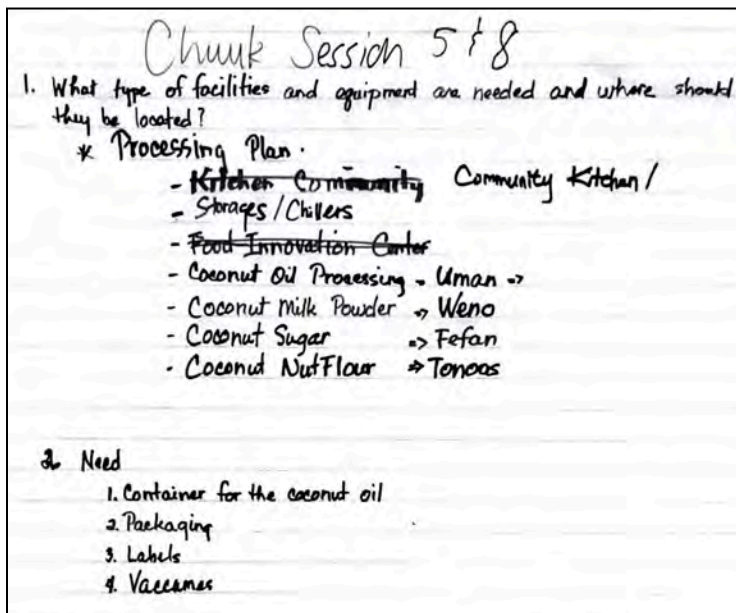 Chuuk Session 5 & 8
1. What type of facilities and equipment are needed and where should
they be located?
* Processing Plan.
- Kitchen Community Community Kitchen /
- Storages / Chillers
- Food Innovation Center
- Coconut Oil Processing - Uman ->
- Coconut Milk Powder -> Weno
- Coconut Sugar => Fefan
- Coconut Nut Flour => Tonoas
2. Need
1. Container for the coconut oil
2. Packaging
3. Labels
4. Vaccumes